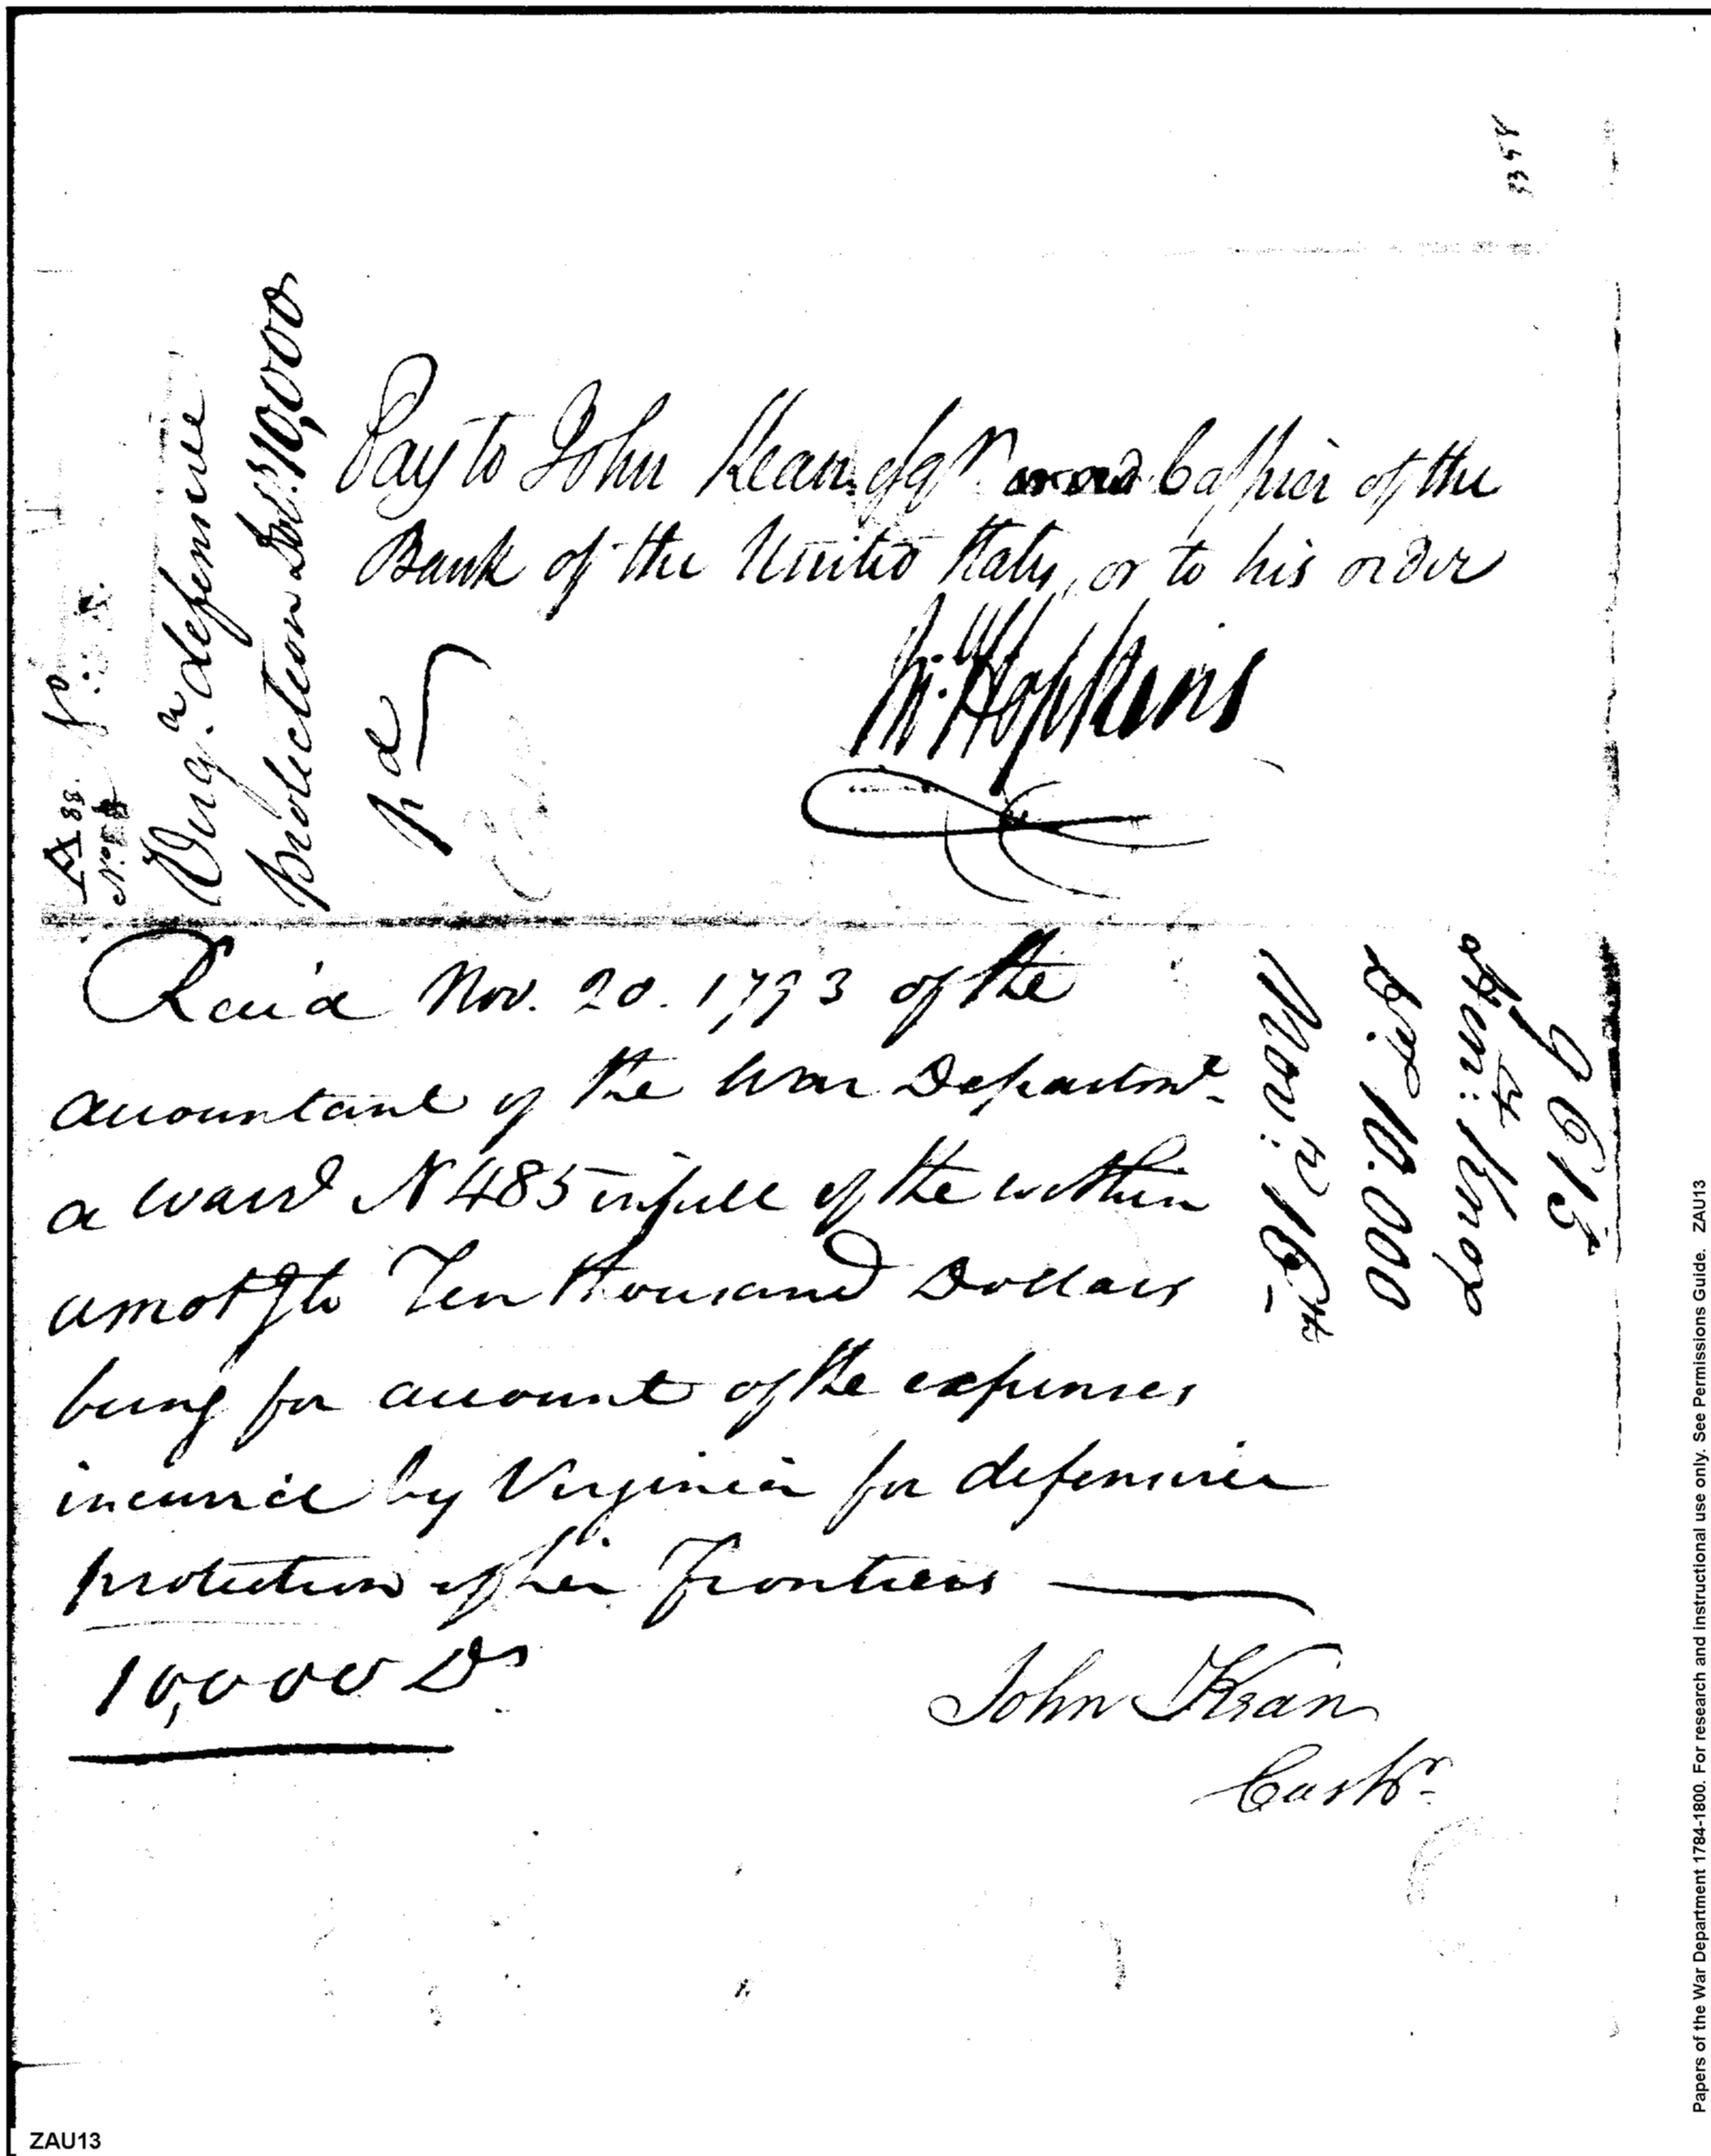 3358
Virg.ª defensive
protection Dol.s 10,000
Pay to John Kean, esqr. Cashier of the
Bank of the United States, or to his order
Hopkins
Recd Nov. 20. 1793 of the
accountant of the War Departmt.
a warrt N 485 in full of the within
amotg to Ten thousand Dollars
being for account of the expenses
incurred by Virginia for defensive
protection of her Frontiers
10,000 Ds.
John Kean
Cashr.
10.000
ZAU13
Papers of the War Department 1784-1800. For research and instructional use only. See Permissions Guide. ZAU13